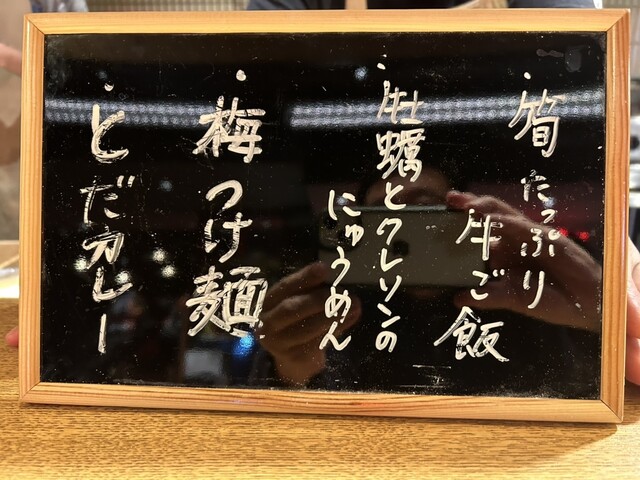 ・筍たっぷり
牛ご飯
・牡蠣とクレソンの
にゅうめん
・梅つけ麺
・とだカレー